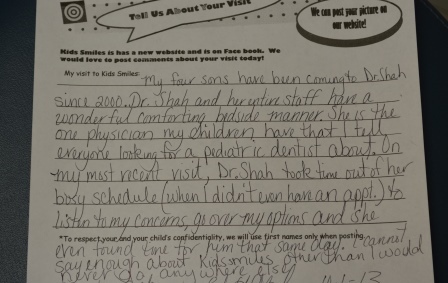 Tell Us About Your Visit
We can post your picture on
our website!
Kids Smiles is has a new website and is on Face book. We
would love to post comments about your visit today!
My visit to Kids Smiles: My four sons have been coming to Dr. Shah
since 2000. Dr. Shah and her entire staff have a
wonderful comforting bedside manner. She is the
one physician my children have that I tell
everyone looking for a pediatric dentist about. On
my most recent visit, Dr. Shah took time out of her
busy schedule (when I didn't even have an appt.) to
listin to my concerns, go over my options and she
*To respect your and your child's confidentiality, we will use first names only when posting
even found time for him that same day. I cannot
say enough about Kidssmiles other than I would
never go anywhere else!